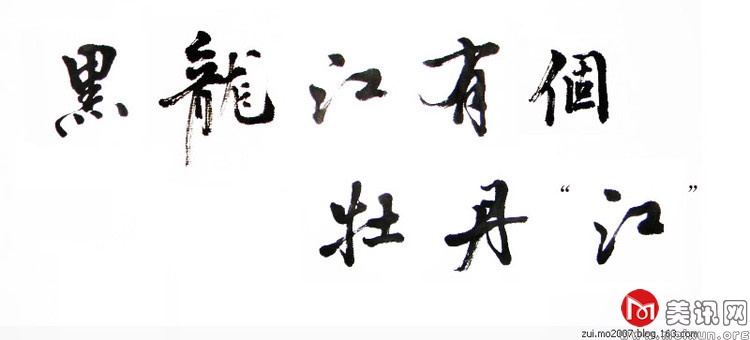 黑龍江有個
牡丹“江”
美讯网
zui.mo2007.blog.163.com